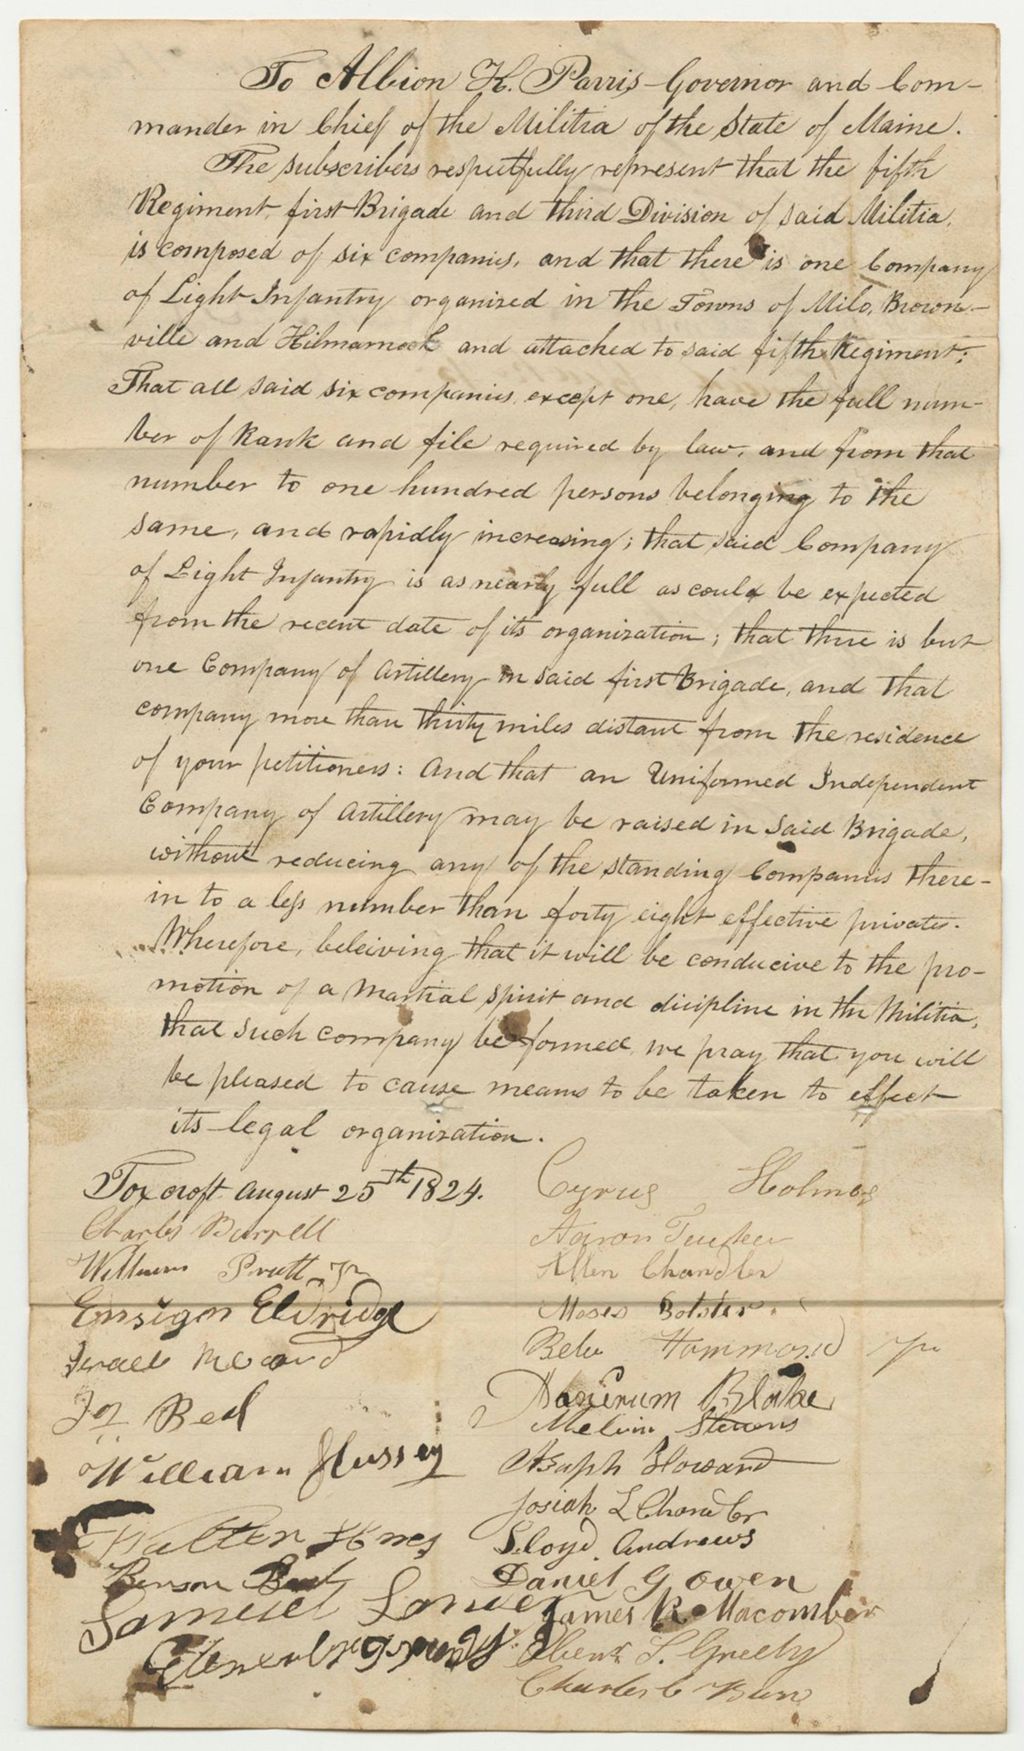 To Albion K. Parris Governor and Com-
mander in Chief of the Militia of the State of Maine.
The subscribers respectfully represent that the fifth
Regiment, first Brigade and third Division of said Militia,
is composed of six companies, and that there is one Company
of Light Infantry organized in the Towns of Milo, Brown-
ville and Kilmarnock and attached to said fifth Regiment:
That all said six companies, except one, have the full num-
ber of Rank and file required by law, and from that
number to one hundred persons belonging to the
same, and rapidly increasing; that said Company
of Light Infantry is as nearly full as could be expected
from the recent date of its organization; that there is but
one Company of Artillery in said first Brigade, and that
company more than thirty miles distant from the residence
of your petitioners: And that an Uniformed Independent
Company of Artillery may be raised in said Brigade,
without reducing any of the standing Companies there-
in to a less number than forty eight effective privates.
Wherefore, beleiving that it will be conducive to the pro-
motion of a Martial spirit and dicipline in the Militia,
that such company be formed, we pray that you will
be pleased to cause means to be taken to effect
its legal organization.
Foxcroft August 25th 1824.
Cyrus Holmes
Charles Barrell
Aaron Tucker
William Pratt Jr
Allen Chandler
Ensign Eldridge
Moses Bolster
Bela Hammond
Blake
Melvin Stevens
William Hussey
Asaph Howard
Josiah L Chandler
Walter
Lloyd Andrews
Benson
Daniel G Owen
Samuel
James R. Macomber
S. Greely
Charles C